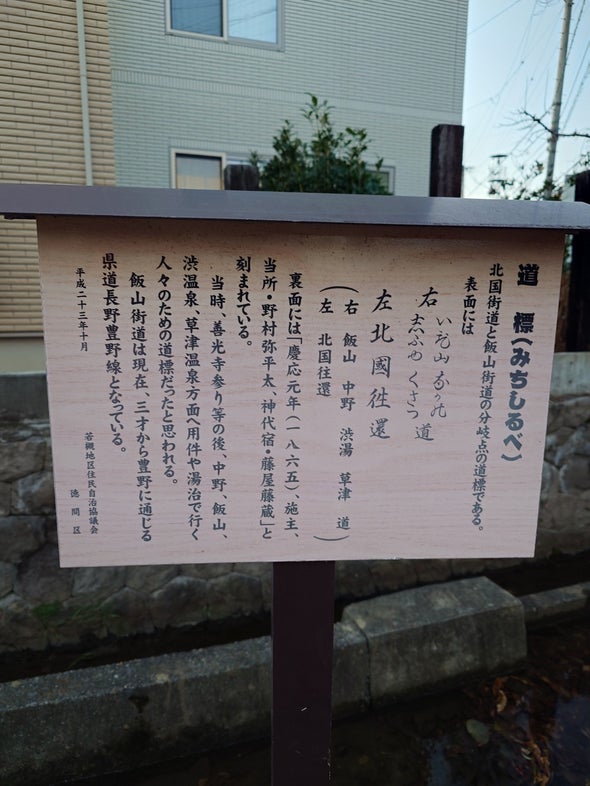 道標(みちしるべ)
北国街道と飯山街道の分岐点の道標である。
表面には
右 いゑ山 なか乃
志ふゆ くさつ 道
左北國徃還
(右 飯山 中野 渋湯 草津 道)
(左 北国往還)
裏面には「慶応元年(一八六五)、施主、
当所・野村弥平太、神代宿・藤屋藤蔵」と
刻まれている。
当時、善光寺参り等の後、中野、飯山、
渋温泉、草津温泉方面へ用件や湯治で行く
人々のための道標だったと思われる。
飯山街道は現在、三才から豊野に通じる
県道長野豊野線となっている。
平成二十三年十月
若槻地区住民自治協議会
徳間区